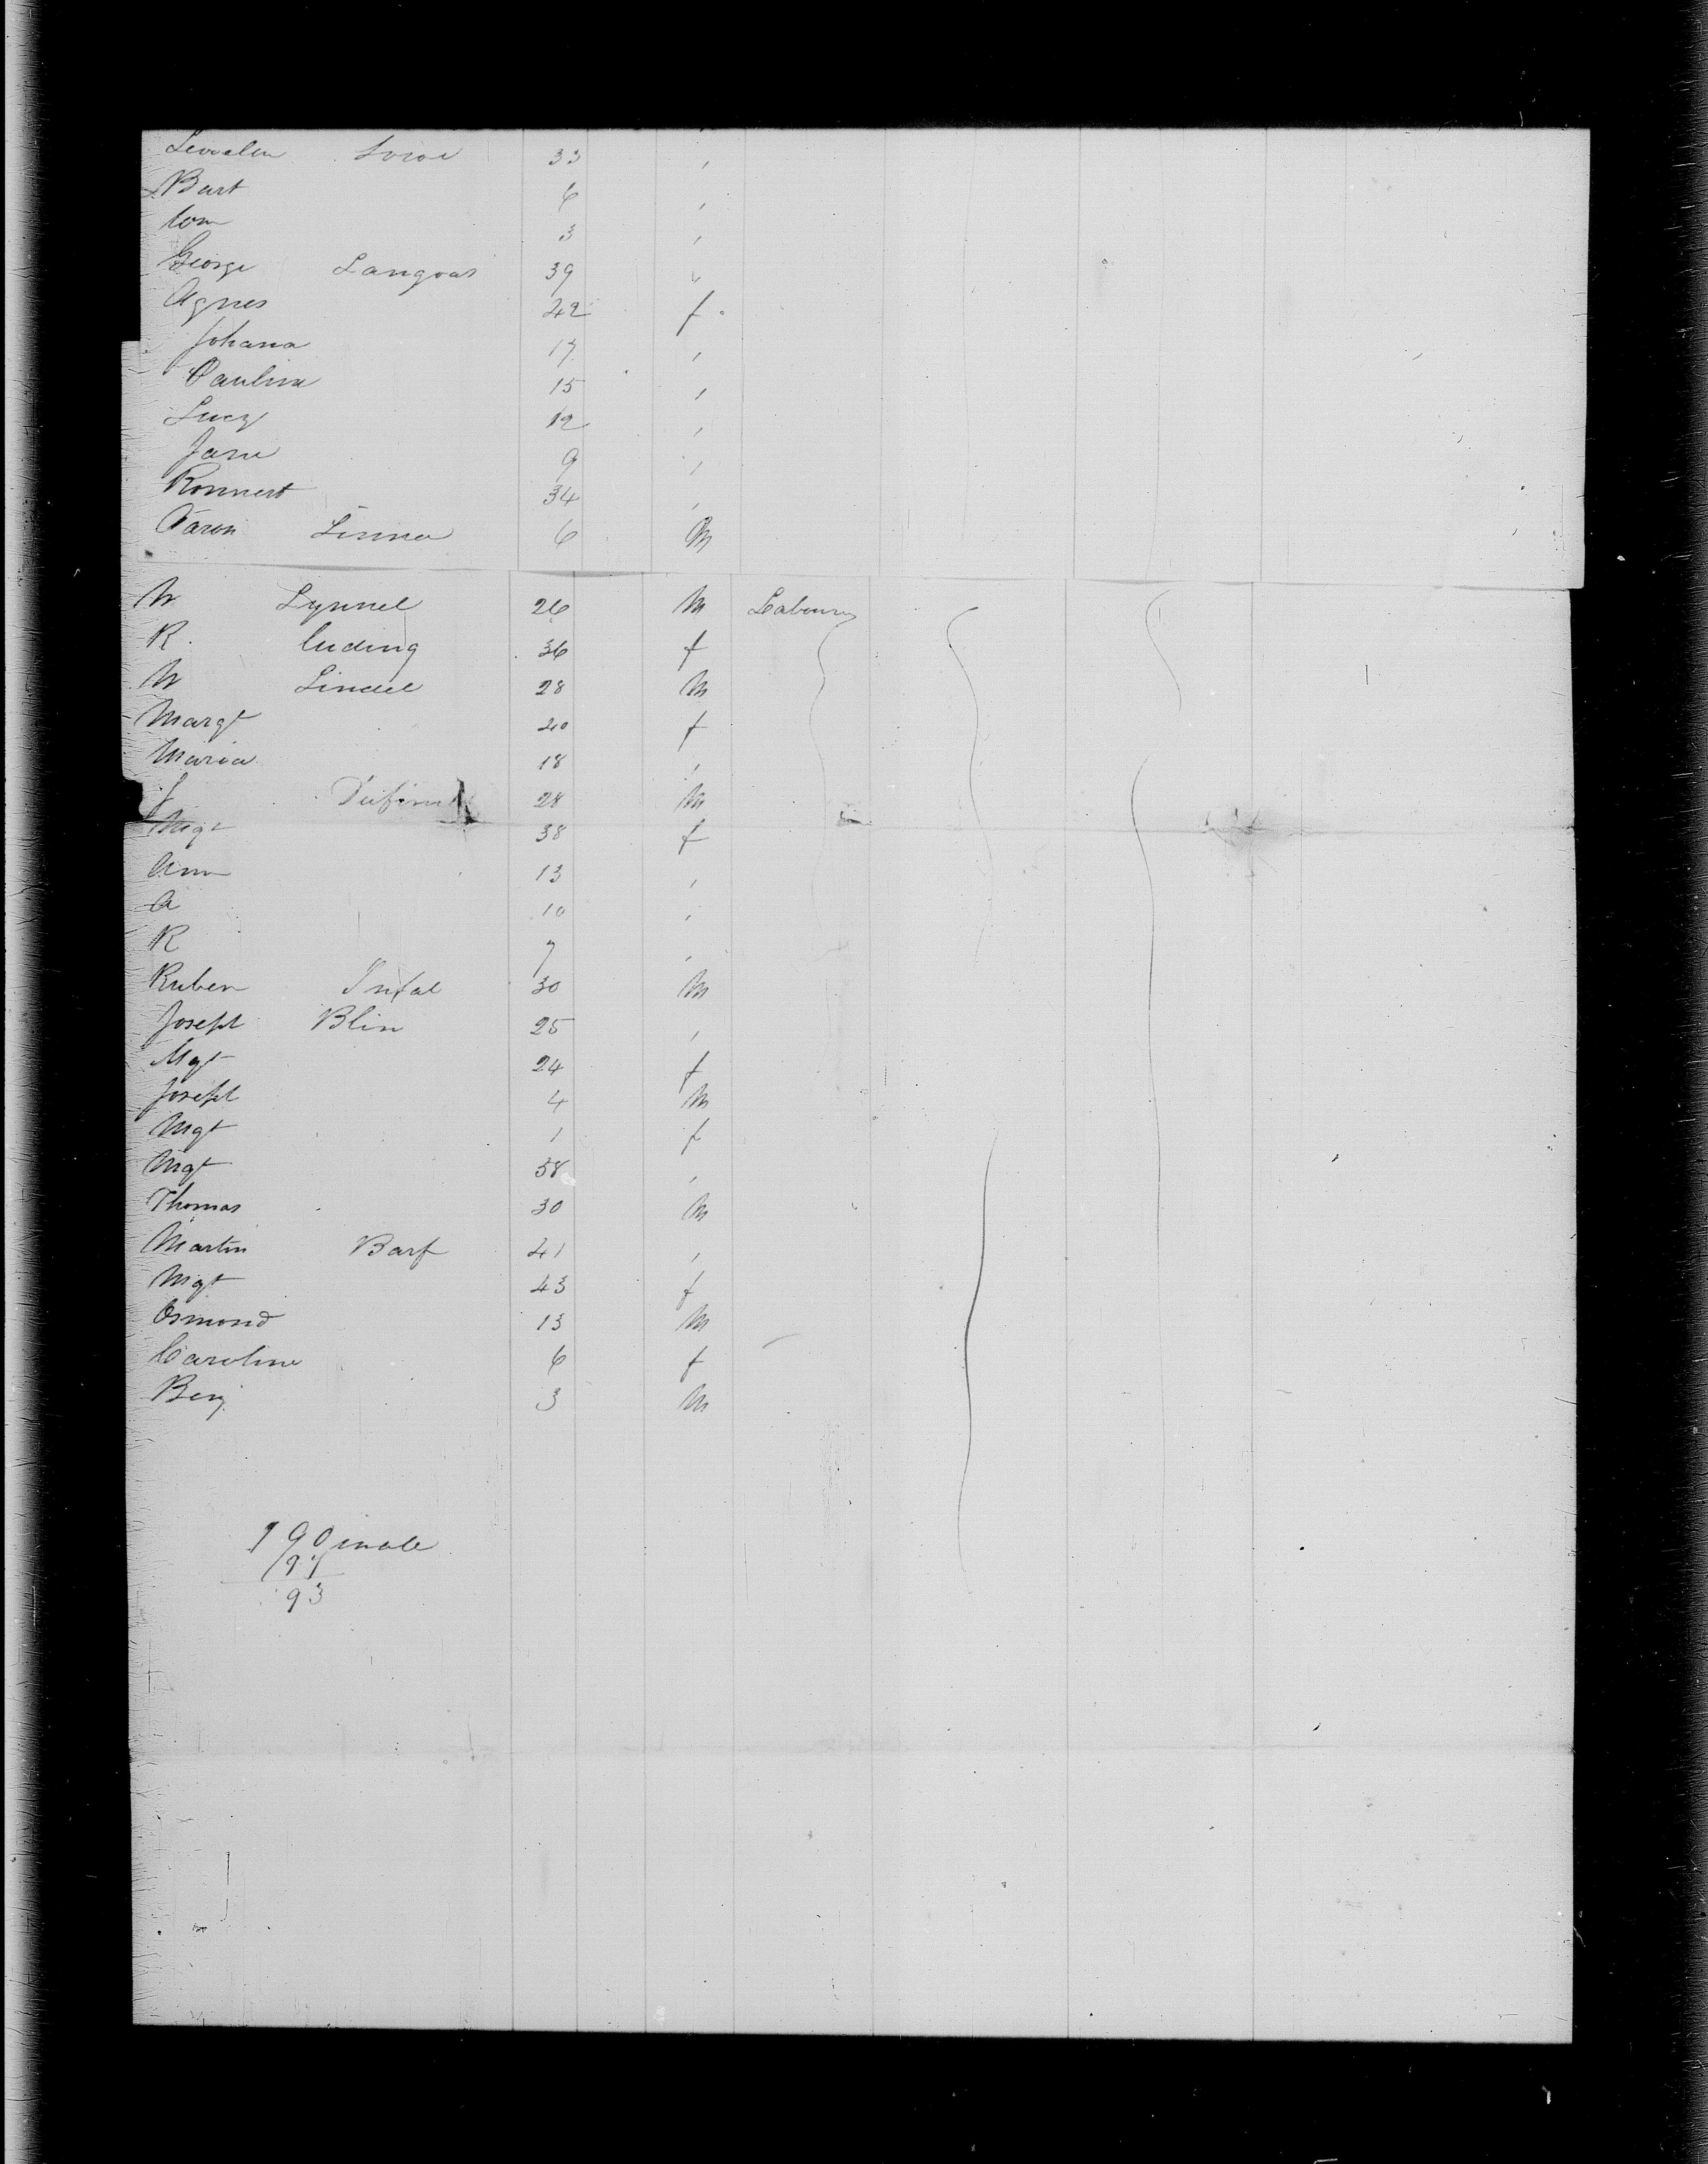 33 ,
Bart 6 ,
3 ,
George Langvas 39 "
Agnes 42 f
Johana 17 ,
Paulina 15 ,
Lucy 12 ,
Jane 9 ,
34 ,
Aaron 6 M
W Lynnel 26 M Labourer
R. 36 f
W Lindel 28 M
Margt 20 f
Maria 18 ,
J 28 M
Mgt 38 f
Ann 13 ,
A 10 ,
R 7 ,
Ruben 30 M
Joseph Blin 25 ,
Mgt 24 f
Joseph 4 M
Mgt 1 f
Mgt 58 ,
Thomas 30 M
Martin Barf 41 ,
Mgt 43 f
Osmond 13 M
Caroline 6 f
Benj 3 M
190 male
97
93